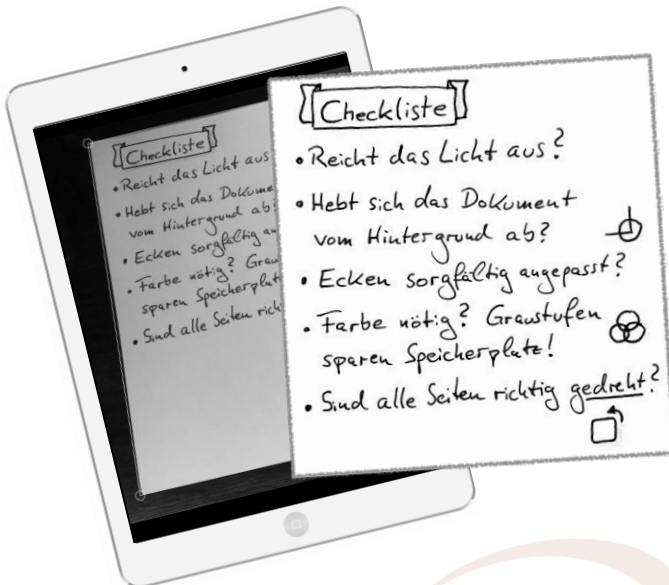 Checkliste
• Reicht das Licht aus
• Hebt sich das Dokume
vom Hintergrund ab?
• Ecken sorgfältig an
• Farbe nötig? Grau
sparen Speicherplat
• Sind alle Seiten rich
Checkliste
• Reicht das Licht aus?
• Hebt sich das Dokument
vom Hintergrund ab?
• Ecken sorgfältig angepasst?
• Farbe nötig? Graustufen
sparen Speicherplatz!
• Sind alle Seiten richtig gedreht?